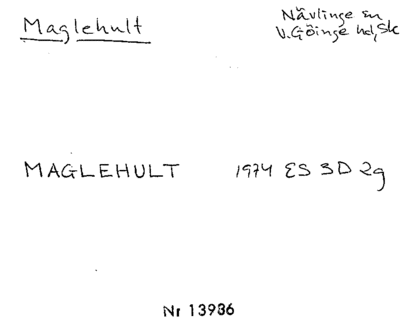 Maglehult
Nävlinge sn
V. Göinge hd, Sk
MAGLEHULT 1974 ES 3D 2g
Nr 13986